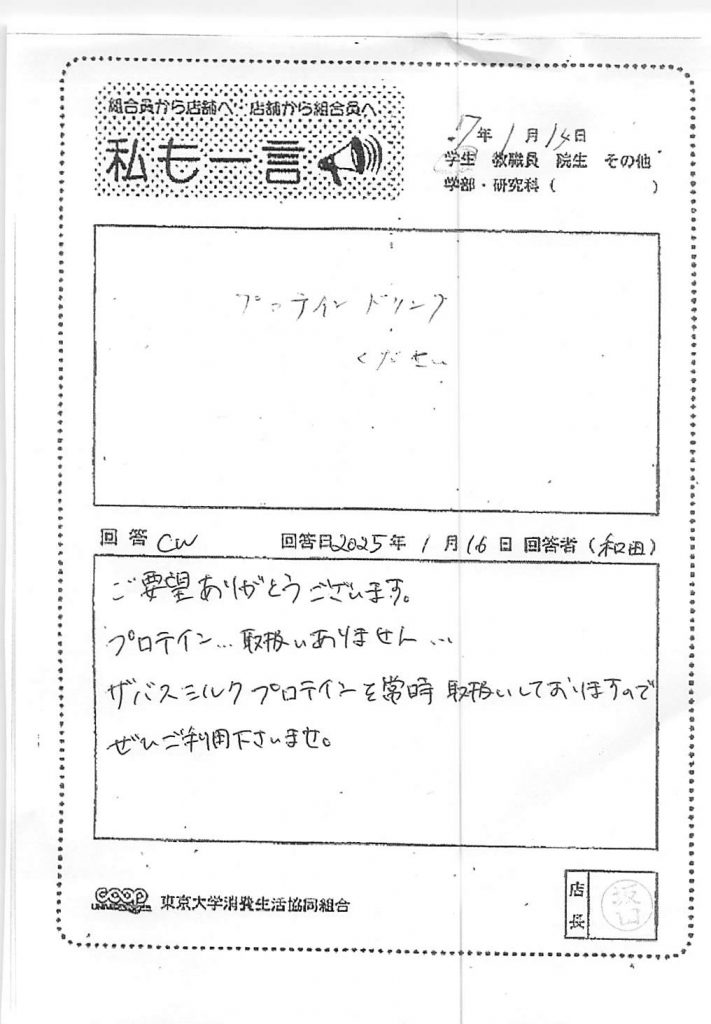 組合員から店舗へ 店舗から組合員へ
私も一言
7年1月14日
学生 教職員 院生 その他
学部・研究科( )
プロテインドリンク
ください
回答 CW 回答日2025年1月16日 回答者(和田)
ご要望ありがとうございます。
プロテイン…取扱いありません…
ザバスミルクプロテインを常時取扱いしておりますので
ぜひご利用下さいませ。
coop 東京大学消費生活協同組合
店長